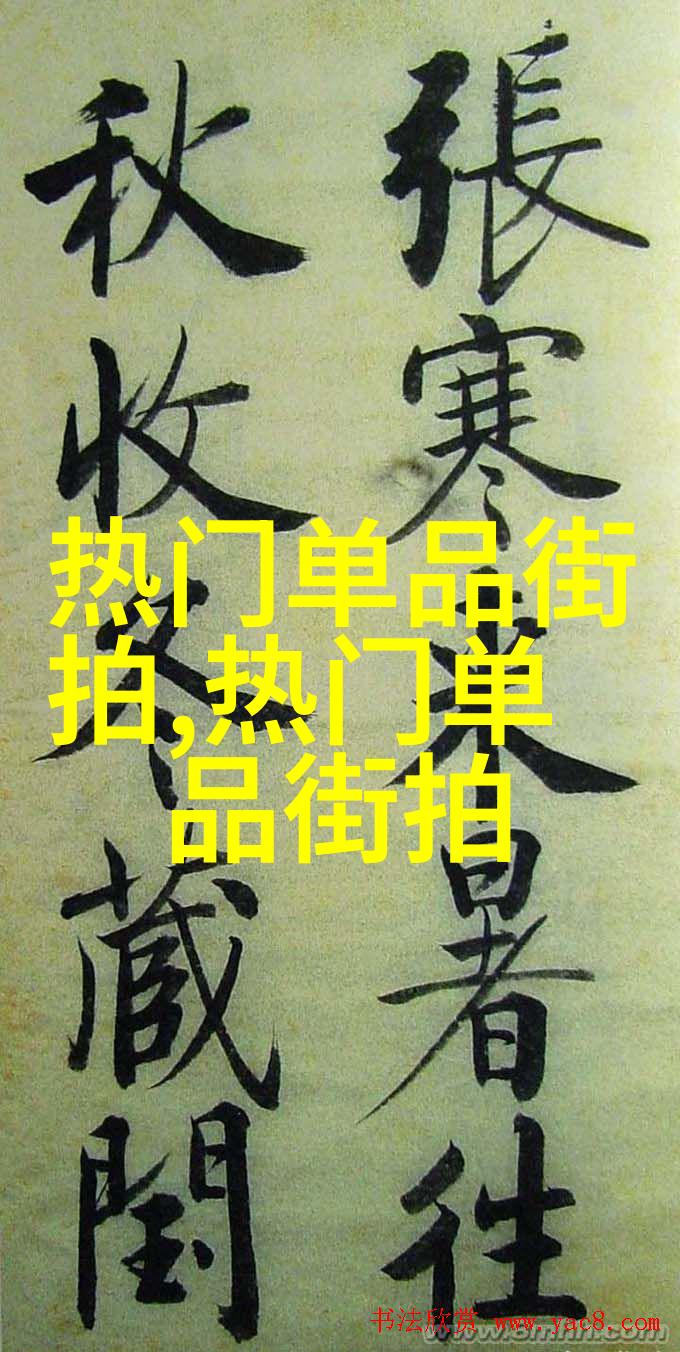 張寒来暑往
秋收冬蔵閏
热门单品街
拍,热门单
品街拍
书法欣赏 www.yac8.com